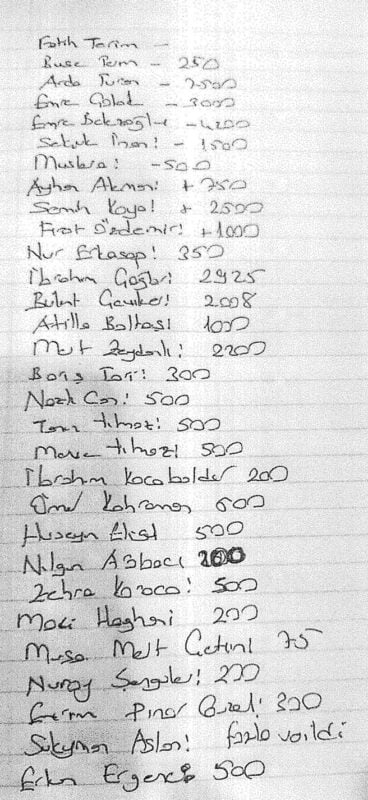 Fatih Terim -
Buse Terim - 250
Arda Turan - 7500
Emre Çolak - 3000
Emre Belezoğlu - 4200
Selçuk İnan! - 1500
Muslera! - 500
Ayhan Akman! + 750
Semih Kaya! + 2500
Fırat Özdemir! + 1000
Nur Erkasap! 350
İbrahim 2925
Bülnt 2008
Atilla Baltası 1000
Mert Zeydanlı! 2200
Barış Tarı! 300
Nazlı Can! 500
Tanır Yılmaz! 500
Merve Yılmaz! 500
İbrahim Kocabalder 200
Ömer Kahraman 600
Huseyn Eksl 500
Nilgn
Zehra Karaca! 500
Maci Haghari 200
Musa Mert Çetin! 75
Nuray Şengüle! 200
Pınar Güzel! 300
Süleyman Aslan! fazla vaildi
Erkn Ergenç 500